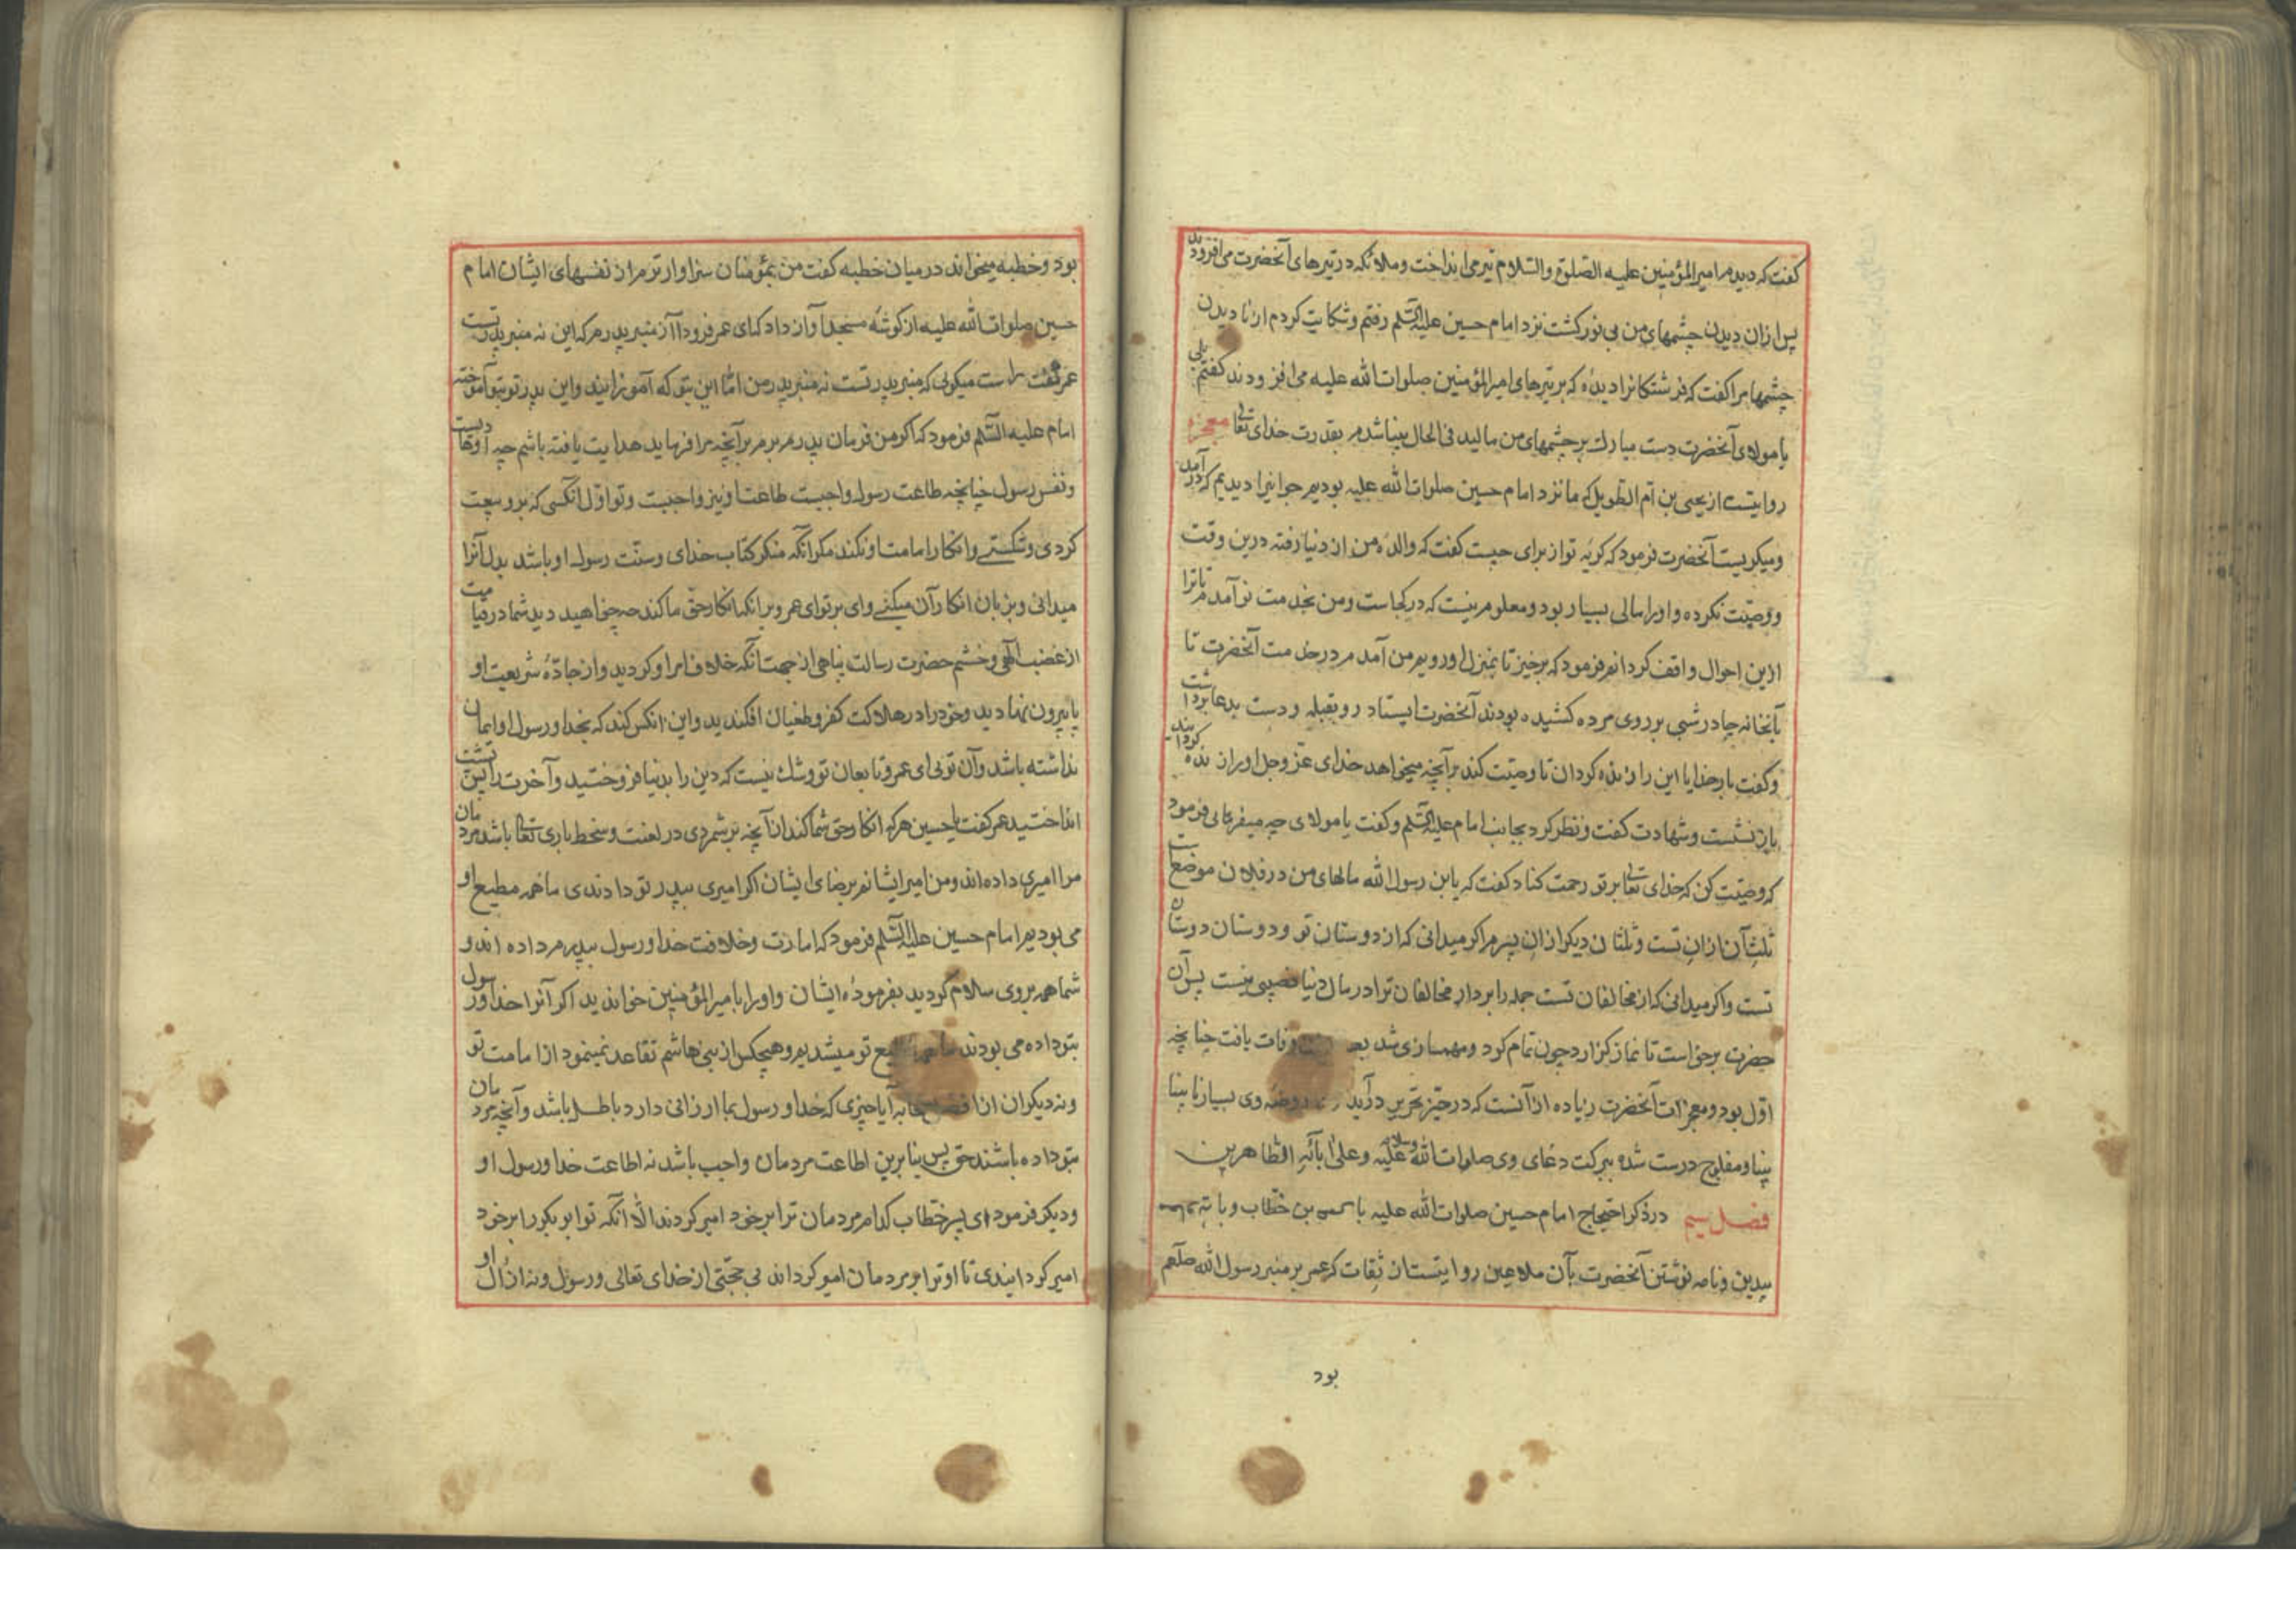 گفت که دیدم امیرالمؤمنین علیه الصلوة والسلام تیر می انداخت وملائکه در تیرهای آنحضرت می افزودند
پس ازان دیدن چشمهای من بی نور کشت نزد امام حسین علیه السلم رفتم وشکایت کردم از نا دیدن
چشمها مرا گفت که فرشتکانرا دیدهٔ که بر تیرهای امیرالمؤمنین صلوات الله علیه می افزودند گفتم بلی
یا مولای آنحضرت دست مبارک بر چشمهای من مالید فی الحال بینا شدم بقدرت خدای تعالی معجزه
روایتست از یحیی بن ام الطویل که ما نزد امام حسین صلوات الله علیه بودیم جوانیرا دیدیم که در آمد
ومیکریست آنحضرت فرمود که کریه تو از برای چیست گفت که والدهٔ من از دنیا رفته درین وقت
ووصیّت نکرده واورا مالی بسیار بود ومعلوم نیست که در کجاست ومن بخدمت تو آمدم تا ترا
ازین احوال واقف کردانم فرمود که برخیز تا بمنزل او رویم من آمدم در خدمت آنحضرت تا
بآنخانه چادر شبی بر روی مرده کشیده بودند آنحضرت ایستاد رو بقبله ودست بدعا برداشت
وگفت بار خدایا این را زنده کردان تا وصیّت کند برآنچه میخواهد خدای عزّ وجل اورا زنده کردانید
باز نشست وشهادت گفت ونظر کرد بجانب امام علیه السلم وگفت یا مولای چه میفرمایی فرمود
که وصیّت کن که خدای تعالی بر تو رحمت کناد گفت که یابن رسول الله مالهای من در فلان موضعست
ثلث آن ازان تست وثلثان دیکر ازان پسرم اگر میدانی که از دوستان تو ودوستان دوستان
تست واکر میدانی که از مخالفان تست جمله را بردار مخالفان ترا در مال دنیا نصیبی نیست پس آن
حضرت برخواست تا نماز کزارد چون تمام کرد ومهمسازی شد وفات یافت چنانچه
اوّل بود ومعجزات آنحضرت زیاده از آنست که در حیّز تحریر درآید وی بسیار نا بینا
بینا ومفلوج درست شده ببرکت دعای وی صلوات الله وسلامه علیه وعلی آبائه الطاهرین
فصل سیم در ذکر احتجاج امام حسین صلوات الله علیه با عمر بن خطّاب وبا
بیدین ونامه نوشتن آنحضرت بآن ملاعین روایتست از ثقات که عمر بر منبر رسول الله صلعم
بود
بود وخطبه میخواند در میان خطبه گفت من بمؤمنان سزاوار ترم از نفسهای ایشان امام
حسین صلوات الله علیه از گوشهٔ مسجد آواز داد که ای عمر فرود آ از منبر پدرم که این نه منبر پدرتست
عمر گفت راست میکویی که منبر پدرتست نه منبر پدر من امّا این بتو که آموزانید واین پدر تو بتو آموخته
امام علیه السلم فرمود که اکر من فرمان پدرم برم برآنچه مرا فرماید هدایت یافته باشم چه او هادیست
ونفس رسول چنانچه طاعت رسول واجبست طاعت او نیز واجبست وتو اوّل آنکسی که برو بیعت
کردی وشکستی وانکار امامت او نکند مکر آنکه منکر کتاب خدای وسنّت رسول او باشد بدل آنرا
میدانی وبزبان انکار آن میکنی وای بر تو ای عمر وبر آنکه انکار حق ما کند چه چخواهید دید شما در قیامت
از غضب الهی وخشم حضرت رسالت پناهی از جهت آنکه خلاف امر او کردید واز جادّهٔ شریعت او
پا بیرون نهادید وخود را در هلاکت کفر وطغیان افکندید واین آنکس کند که بخدا ورسول او ایمان
نداشته باشد وآن تویی ای عمر وتابعان تو وشک نیست که دین را بدنیا فروختید وآخرت را پس پشت
انداختید عمر گفت یا حسین هرکه انکار حق شما کند از آنچه بر شمردی در لعنت وسخط باری تعالی باشد مردمان
مرا امیری داده اند ومن امیر ایشانم برضای ایشان اکر امیری بپدر تو دادندی ما همه مطیع او
می بودیم امام حسین علیه السلم فرمود که امارت وخلافت خدا ورسول بپدرم داده اند و
شما همه بروی سلام کردید بفرمودهٔ ایشان واورا بامیرالمؤمنین خواندید اکر آنرا خدا ورسول
بتو داده می بودند ما همه مطیع تو میشدیم وهیچکس از بنی هاشم تقاعد نمینمود از امامت تو
ونه دیکران از آیا چیزی که خدا ورسول بما ارزانی دارد باطل باشد وآنچه مردمان
بتو داده باشند حق پس بنا برین اطاعت مردمان واجب باشد نه اطاعت خدا ورسول او
ودیکر فرمود ای پسر خطّاب کدام مردمان ترا بر خود امیر کردند الّا آنکه تو ابوبکر را بر خود
امیر کردانیدی تا او ترا بر مردمان امیر کرداند بی حجّتی از خدای تعالی ورسول ونه از آل او